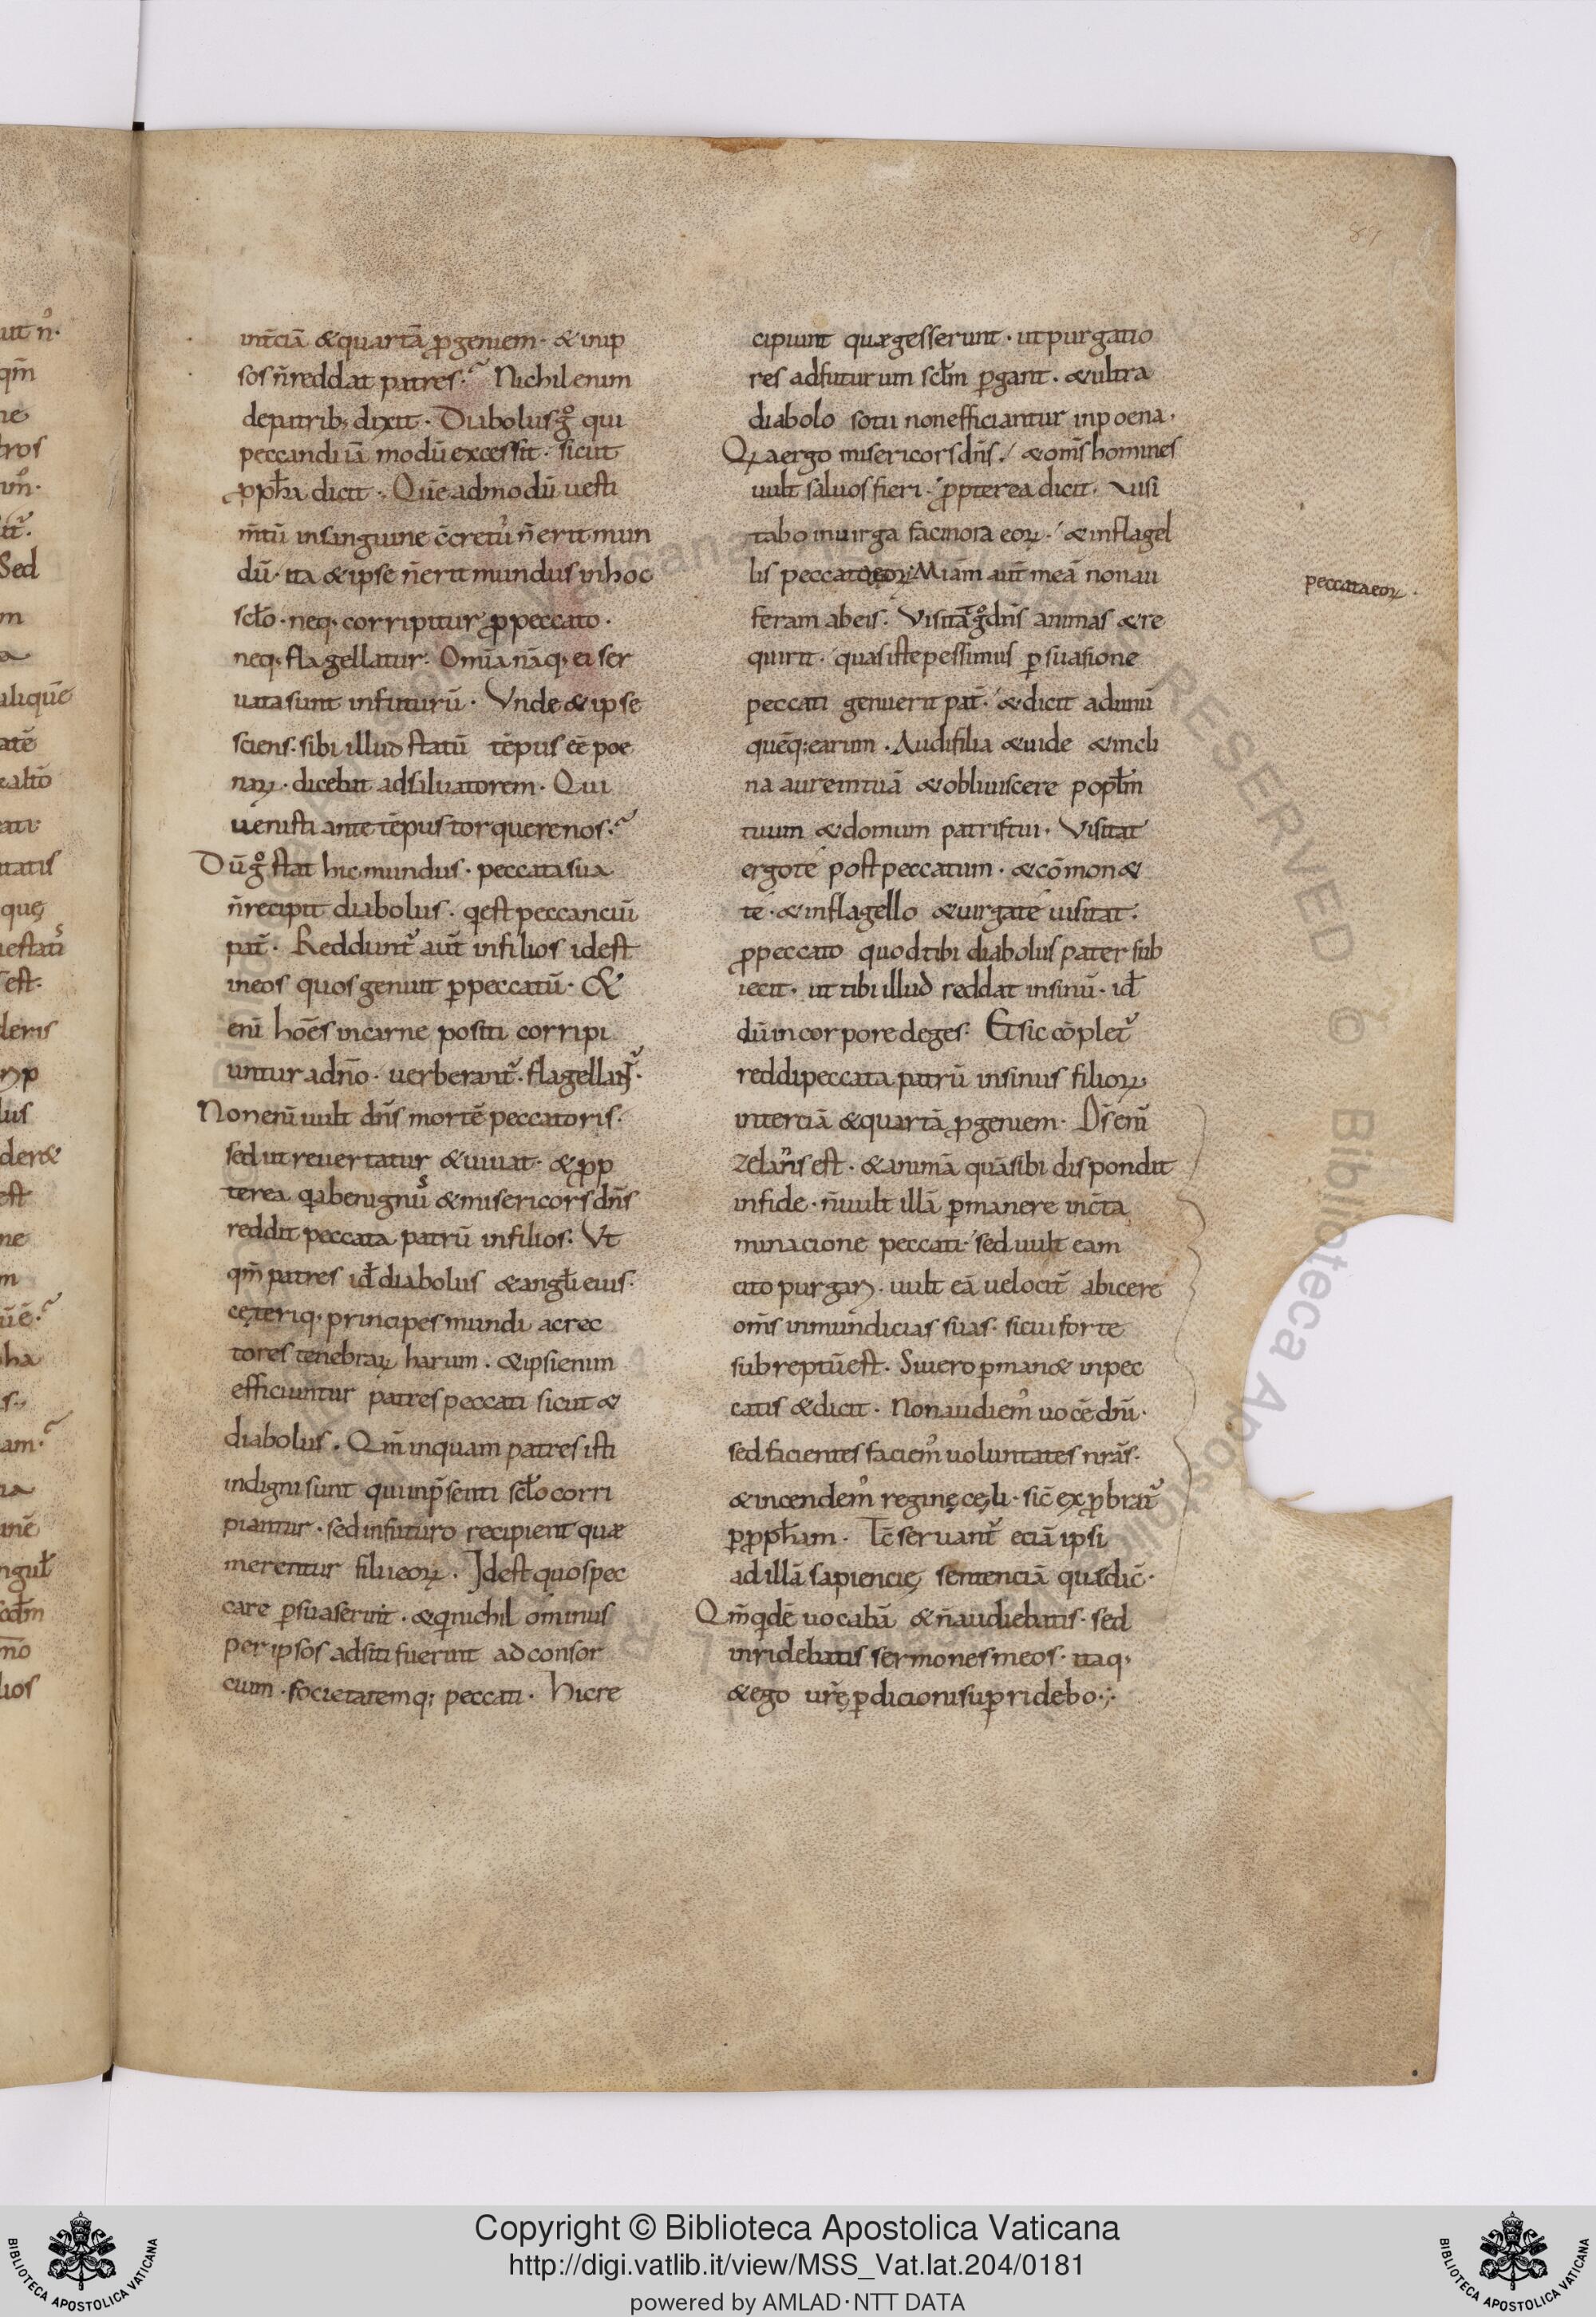 87
int̄ciā &quartā ꝓgeniem· & inip
sos n̄reddat patres· Nichil enim
depatrib; dixit· Diabolus gͦ qui
peccandi iā modū excessit· sicut
ꝓph̄a dicit· Quē admodū uesti
m̄tū insanguine c̄cretū n̄ erit mun
dū· ita & ipse n̄ erit mundus inhoc
sc̄lo· neq; corripitur ꝓpeccato·
neq; flagellatur· Omīa nāq; ei ser
uata sunt infuturū· Vnde & ipse
sciens· sibi illud statū tēpus eē poe
naꝝ· dicebat adsaluatorem· Qui
uenisti ante tēpus torquere nos·
Dū gͦ stat hic mundus· peccata sua
n̄recipit diabolus· qͥ est peccanciū
pat̄· Reddunt᷑ aut̄ infilios idest
ineos quos genuit ꝑpeccatū· &
enī hōes incarne positi corripi
untur adn̄o· uerberant᷑· flagellant᷑·
Non enī uult dn̄s mortē peccatoris·
sed ut reuertatur & uiuat· & ꝓp
terea qͥa benignus & misericors dn̄s
reddit peccata patrū infilios· Vt
qm̄ patres id̄ diabolus & angl̄i eius·
cęteriq; principes mundi ac rec
tores tenebraꝝ harum· & ipsi enim
efficiuntur patres peccati sicut &
diabolus· Qm̄ inquam patres isti
indigni sunt qui inp̄senti sc̄lo corri
piantur· sed infuturo recipient quæ
merentur filii eoꝝ· Idest quos pec
care ꝑsuaserint· & qͥ nichil ominus
per ipsos adsiti fuerint ad consor
cium· societatemq; peccati· Hic re
cipiunt quæ gesserunt· ut purgatio
res adfuturum sc̄lm ꝑgant· & ultra
diabolo sotii non efficiantur inpoena·
Qꝫ a ergo misericors dn̄s· & om̄s homines
uult saluos fieri· ꝓpterea dicit· Visi
tabo inuirga facinora eoꝝ· & inflagel
lis peccato eoꝝ· Miām aut̄ meā non au
feram abeis· Visitat gͦ dn̄s animas & re
quirit· quas iste pessimus ꝑsuasione
peccati genuerit pat̄· & dicit adunā
quēq; earum· Audi filia & uide & incli
na aurem tuā & obliuiscere popl̄m
tuum & domum patris tui· Visitat
ergo te post peccatum· & cōmon&
te· & inflagello & uirga te uisitat·
ꝓpeccato quod tibi diabolus pater sub
iecit· ut tibi illud reddat insinū· id̄
dū incorpore deges· Et sic cōplet᷑
reddi peccata patrū insinus filioꝝ
intertiā & quartā ꝓgeniem· Ds̄ enī
zelans est· & animā quā sibi dispondit
infide· n̄ uult illā ꝑmanere inc̄ta
minacione peccati· sed uult eam
cito purgari· uult eā uelocit̄ abicere
om̄s inmundicias suas· sicui forte
subreptū est· Si uero ꝑman& inpec
catis & dicit· Non audiem᷒ uocē dn̄i·
sed facientes faciem᷒ uoluntates nr̄as·
& incendem᷒ reginę cęli· sic̄ exꝓbrat᷑
ꝑꝓph̄am· Tc̄ seruant᷑ eciā ipsi
ad illā sapiencię sentenciā quā dic̄·
Qm̄ qͥdē uocabā & n̄ audiebatis· sed
inridebatis sermones meos· itaq;
& ego ur̄ę ꝑdicioni suꝑridebo·
peccata eoꝝ
Copyright © Biblioteca Apostolica Vaticana
http://digi.vatlib.it/view/MSS_Vat.lat.204/0181
powered by AMLAD·NTT DATA